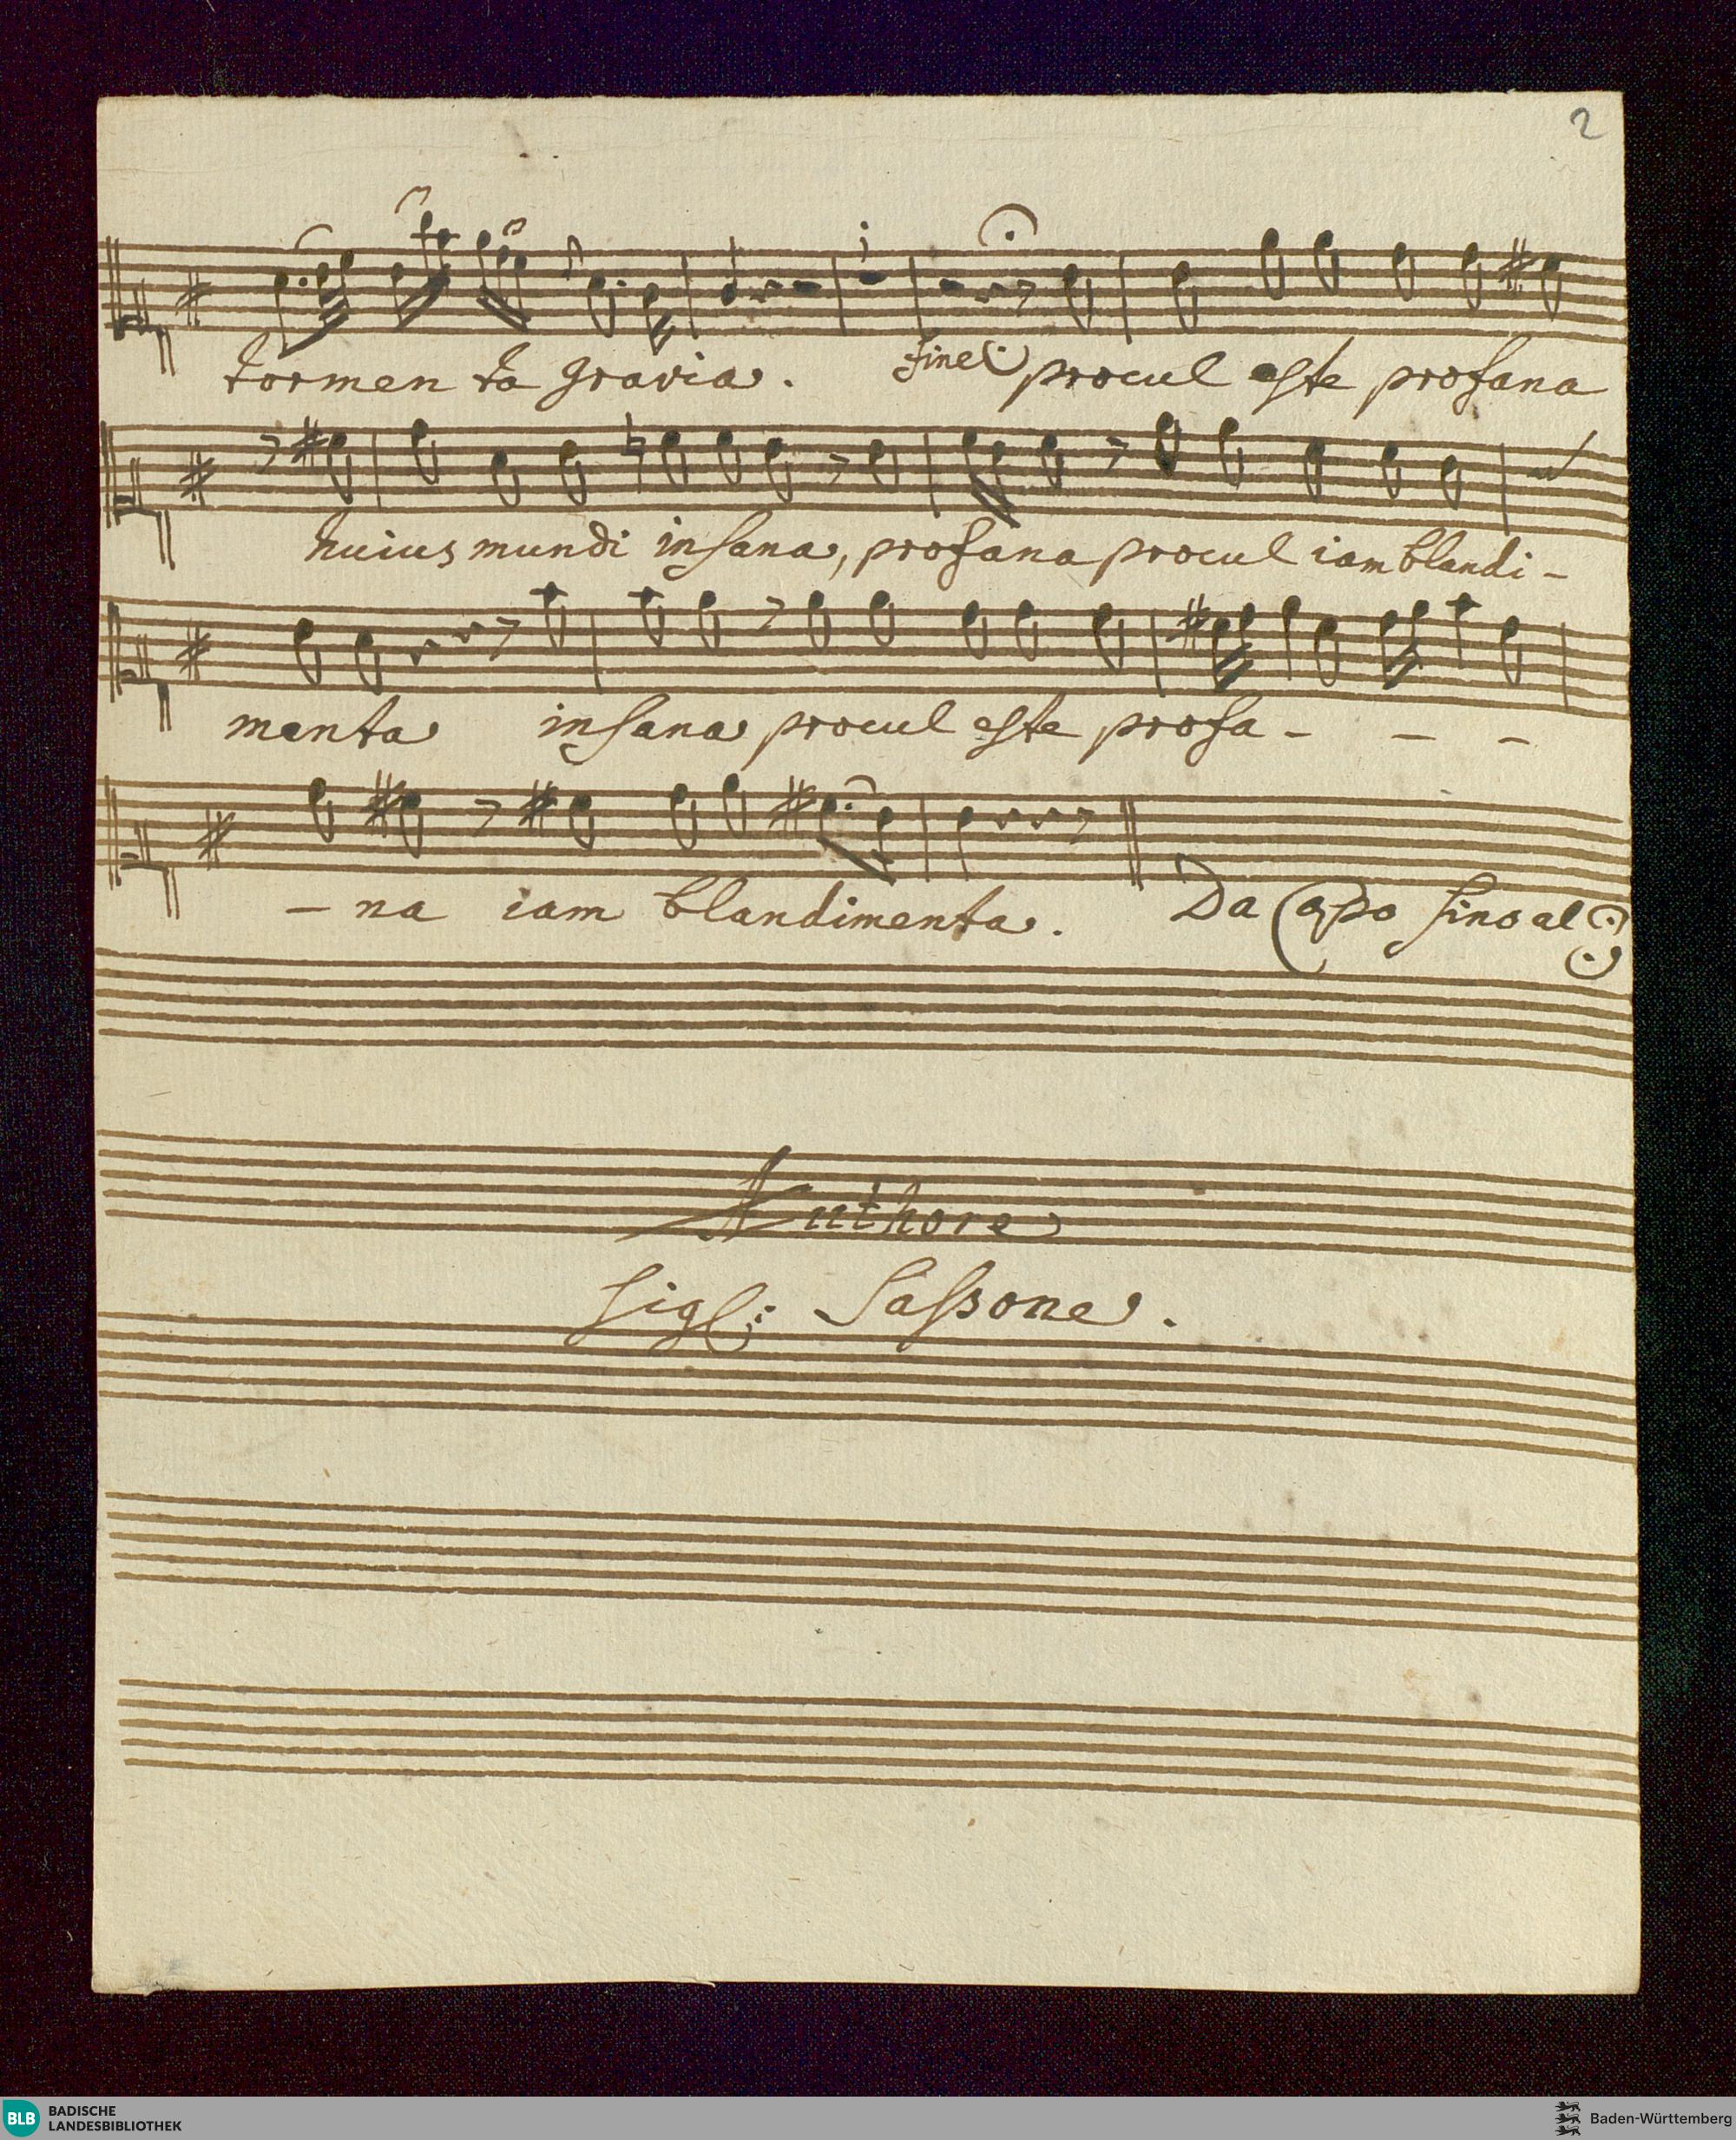 2
tormen ta gravia.
fine procul este profana
huius mundi insana, profana procul iam blandi -
menta insana procul este profa - - -
- na iam blandimenta. Da Capo sino al
Authore
Sigl: Saſsone.
BLB BADISCHE
LANDESBIBLIOTHEK
Baden-Württemberg